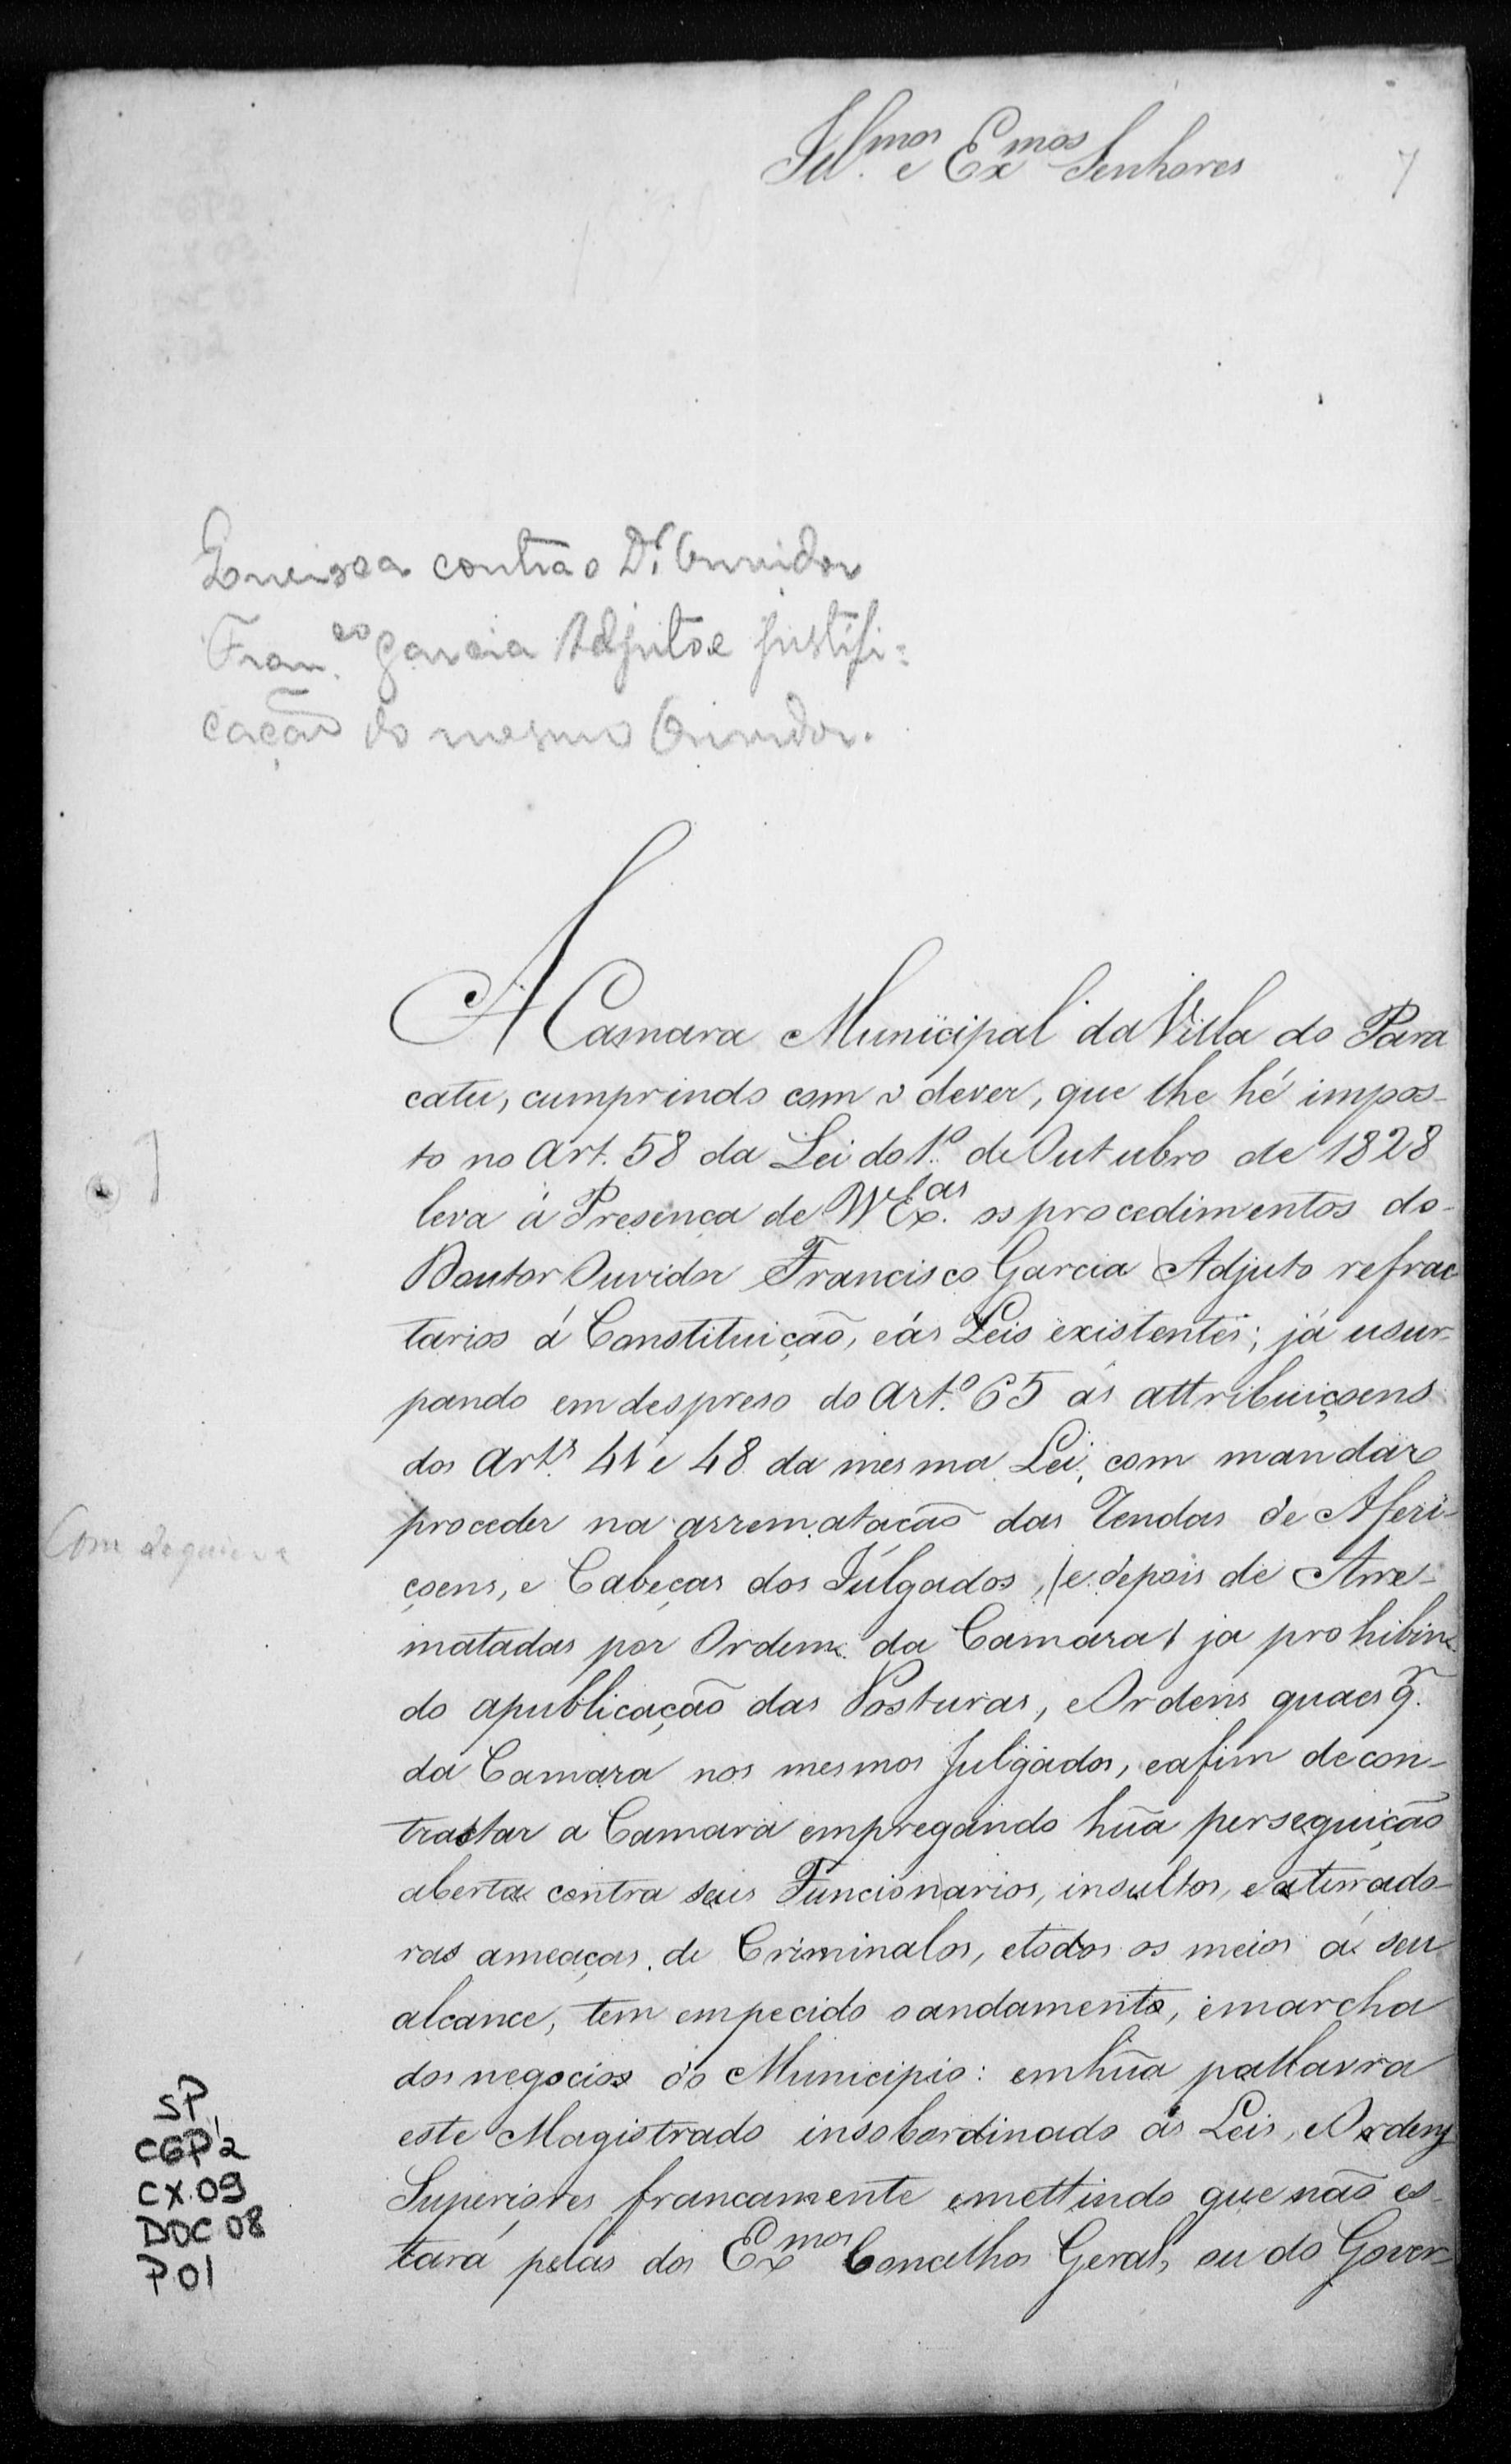 Ill.mos e Ex.mos Senhores
7
Queixa contra o D.r Ouvidor
Fran.co Garcia Adjuto e justifi=
cação do mesmo Ouvidor.
A Camara Municipal da Villa do Para
catu, cumprindo com o dever, que lhe hé impos-
to no Art. 58 da Lei do 1.º de Outubro de 1828
leva á Presença de VV Ex.as os procedimentos do
Doutor Ouvidor Francisco Garcia Adjuto refrac
tarios á Constituição, eás Leis existentes; já usur-
pando em despreso do Art.º 65 as attribuiçoens
dos Art.s 41 e 48 da mesma Lei, com mandar
proceder na arrematação das Rendas de Aferi-
çoens, e Cabeças dos Julgados, (e depois de Arre-
matadas por Ordem da Camara) ja prohibin
do apublicação das Posturas, eOrdens quaes q.̃
da Camara nos mesmos Julgados, eafim decon-
trastar a Camara empregando hũa perseguição
aberta contra seus Funcionarios, insultos, eaterrado-
ras ameaças de Criminalos, etodos os meios á seu
alcance, tem empecido oandamento, emarcha
dos negocios do Municipio: emhũa pallavra
este Magistrado insobordinado ás Leis, eOrdens
Superiores francamente emettindo que não es-
tará pelas dos Ex.mos Concelhos Geral, ou do Gover-
SP
CGP 2
CX. 09
DOC 08
P01